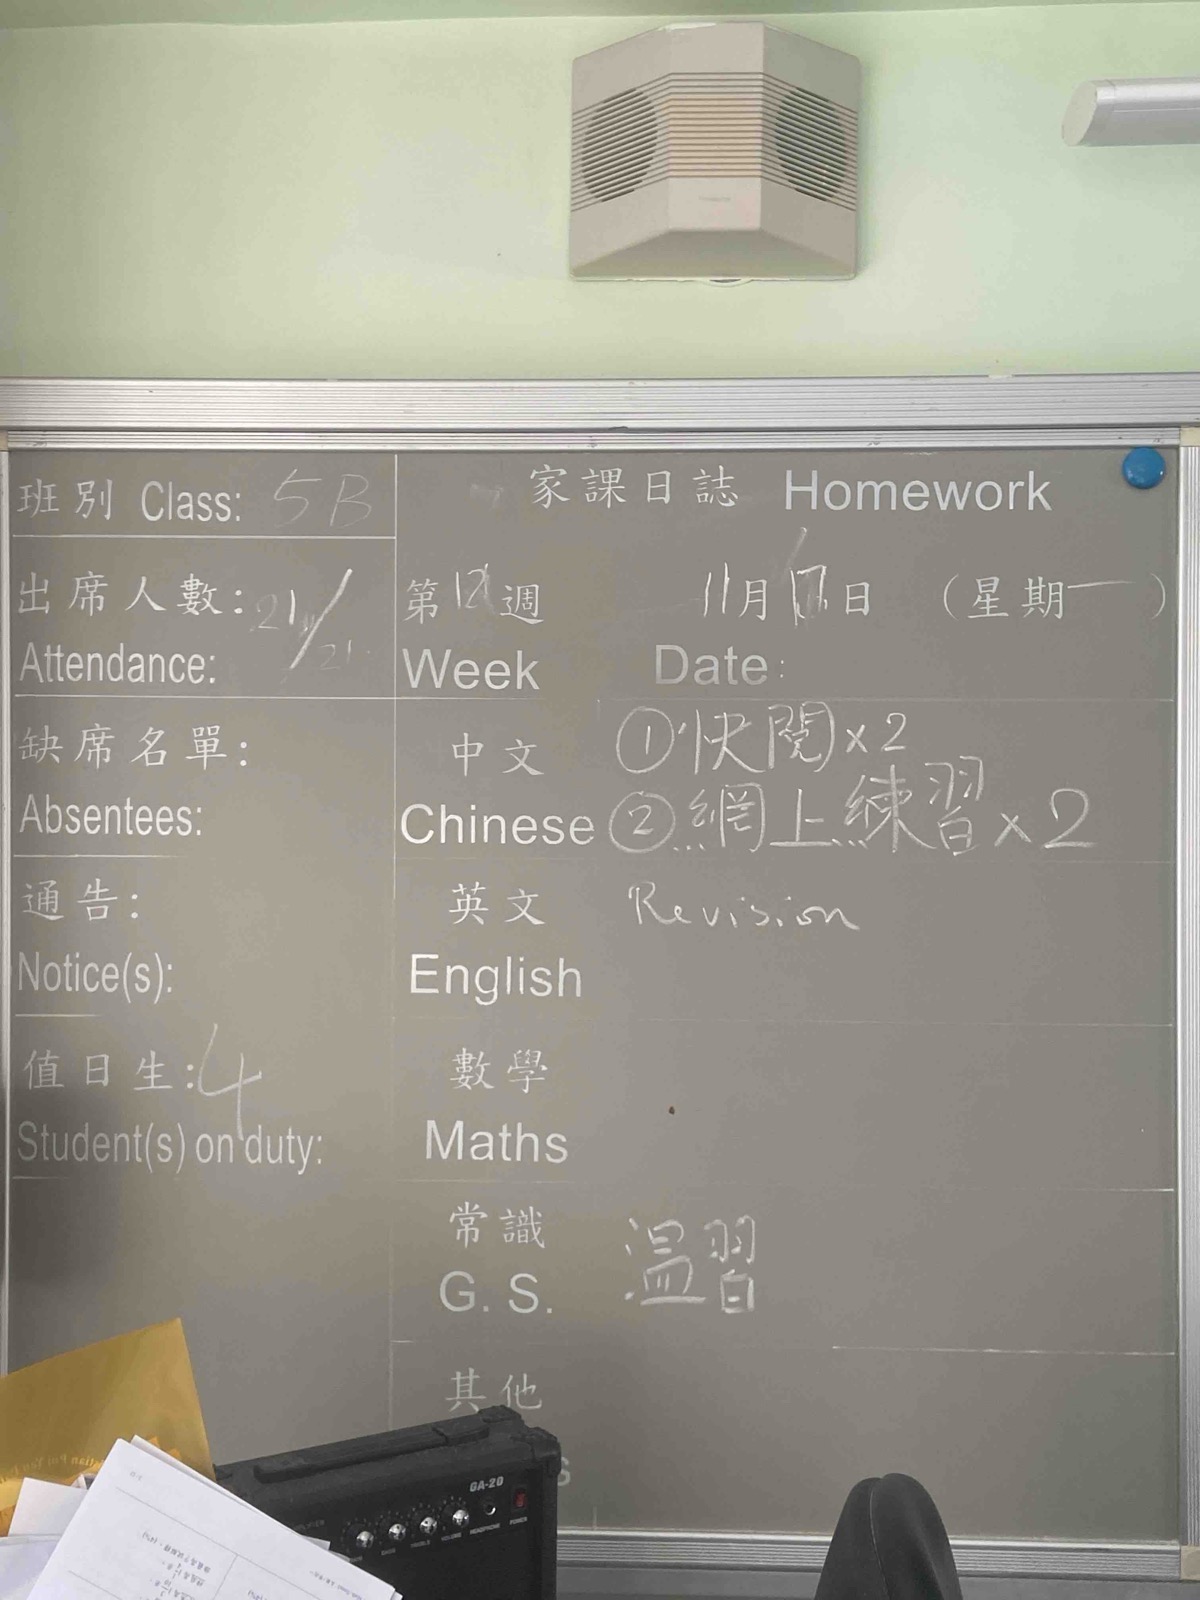 班別 Class: 5B
出席人數: 21/21
Attendance:
缺席名單:
Absentees:
通告:
Notice(s):
值日生: 4
Student(s) on duty:
家課日誌 Homework
第12週 11月 日 (星期一)
Week Date:
中文 ①快閱x2
Chinese ②網上練習x2
英文 Revision
English
數學
Maths
常識 温習
G. S.
其他
s
GA-20
VOLUME HEADPHONE POWER